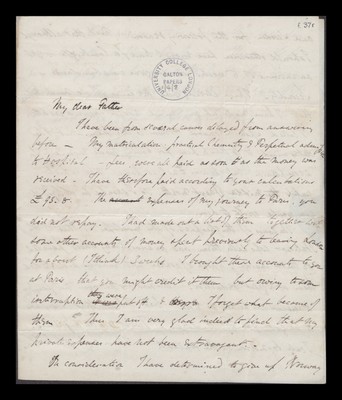 (37)
UNIVERSITY COLLEGE LONDON
GALTON
PAPERS
My dear Father
I have been from several causes delayed from answering
before — My matriculation, practical Chemistry & Perpetual
& Hospital — fees were all paid as soon as the money was
received. I have therefore paid according to your calculations
£95.8. The amount expenses of my journey to Paris, you
did not repay. I had made out a list of them together with
some other accounts of money spent previously to leaving
for about (I think) 3 weeks. I brought these accounts to you
at Paris that you might credit it them but owing to some
interruption they were put it & I forget what became of
them. Thus I am very glad indeed to find that my
private expenses have not been extravagant. —
On consideration I have determined to give up Norway